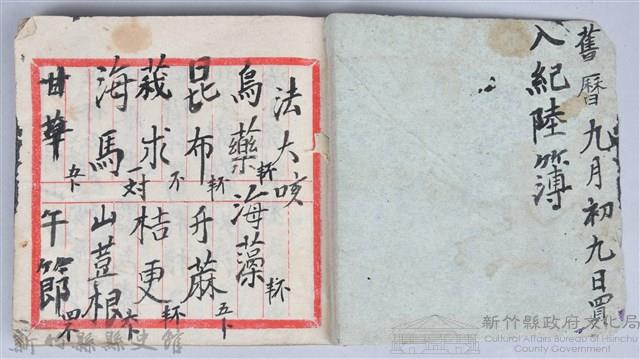 舊曆九月初九日買
入紀陸簿
法大咳
烏藥 海藻
昆布 升蔴
莪求 桔更
海馬 一对 山荳根
甘草 午節
新竹縣縣史館
新竹縣政府文化局
Cultural Affairs Bureau of Hsinchu
County Government